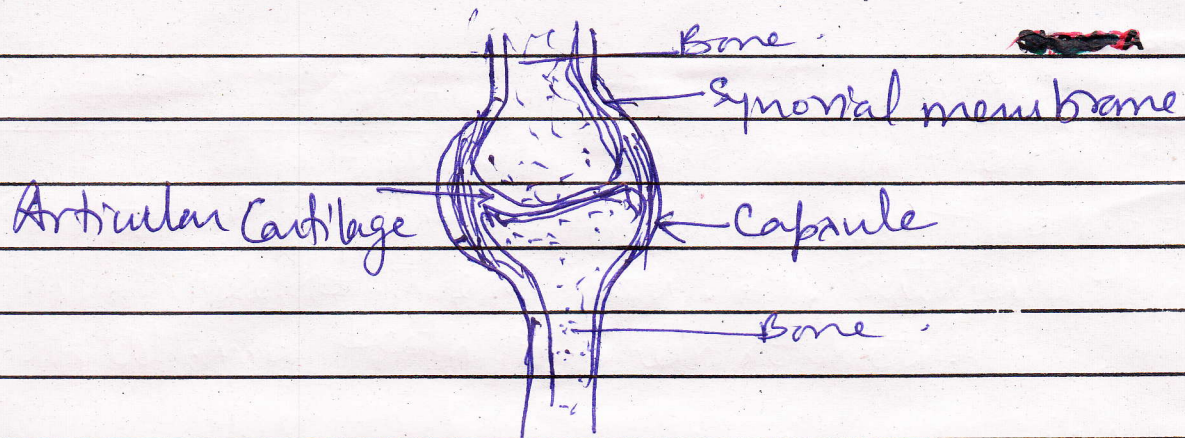 Bone
Synovial membrane
Articular Cartilage
Capsule
Bone